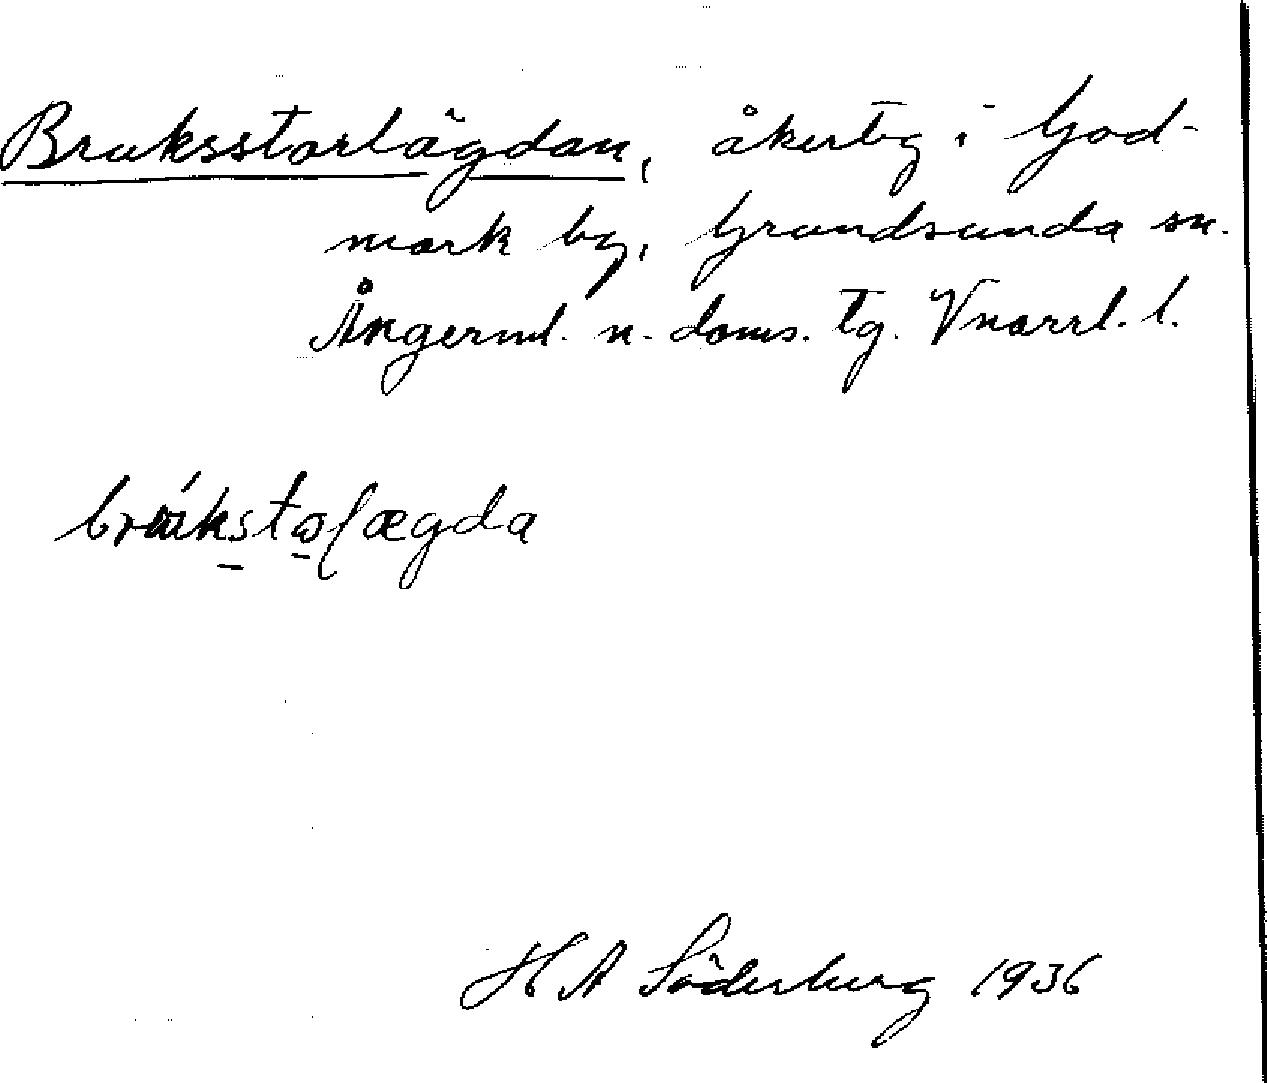 Bruksstorlägdan, åkertg i God-
mark by, Grundsunda sn.
Ångerml. n. doms. tg. Vnorrl. l.
H A Söderberg 1936